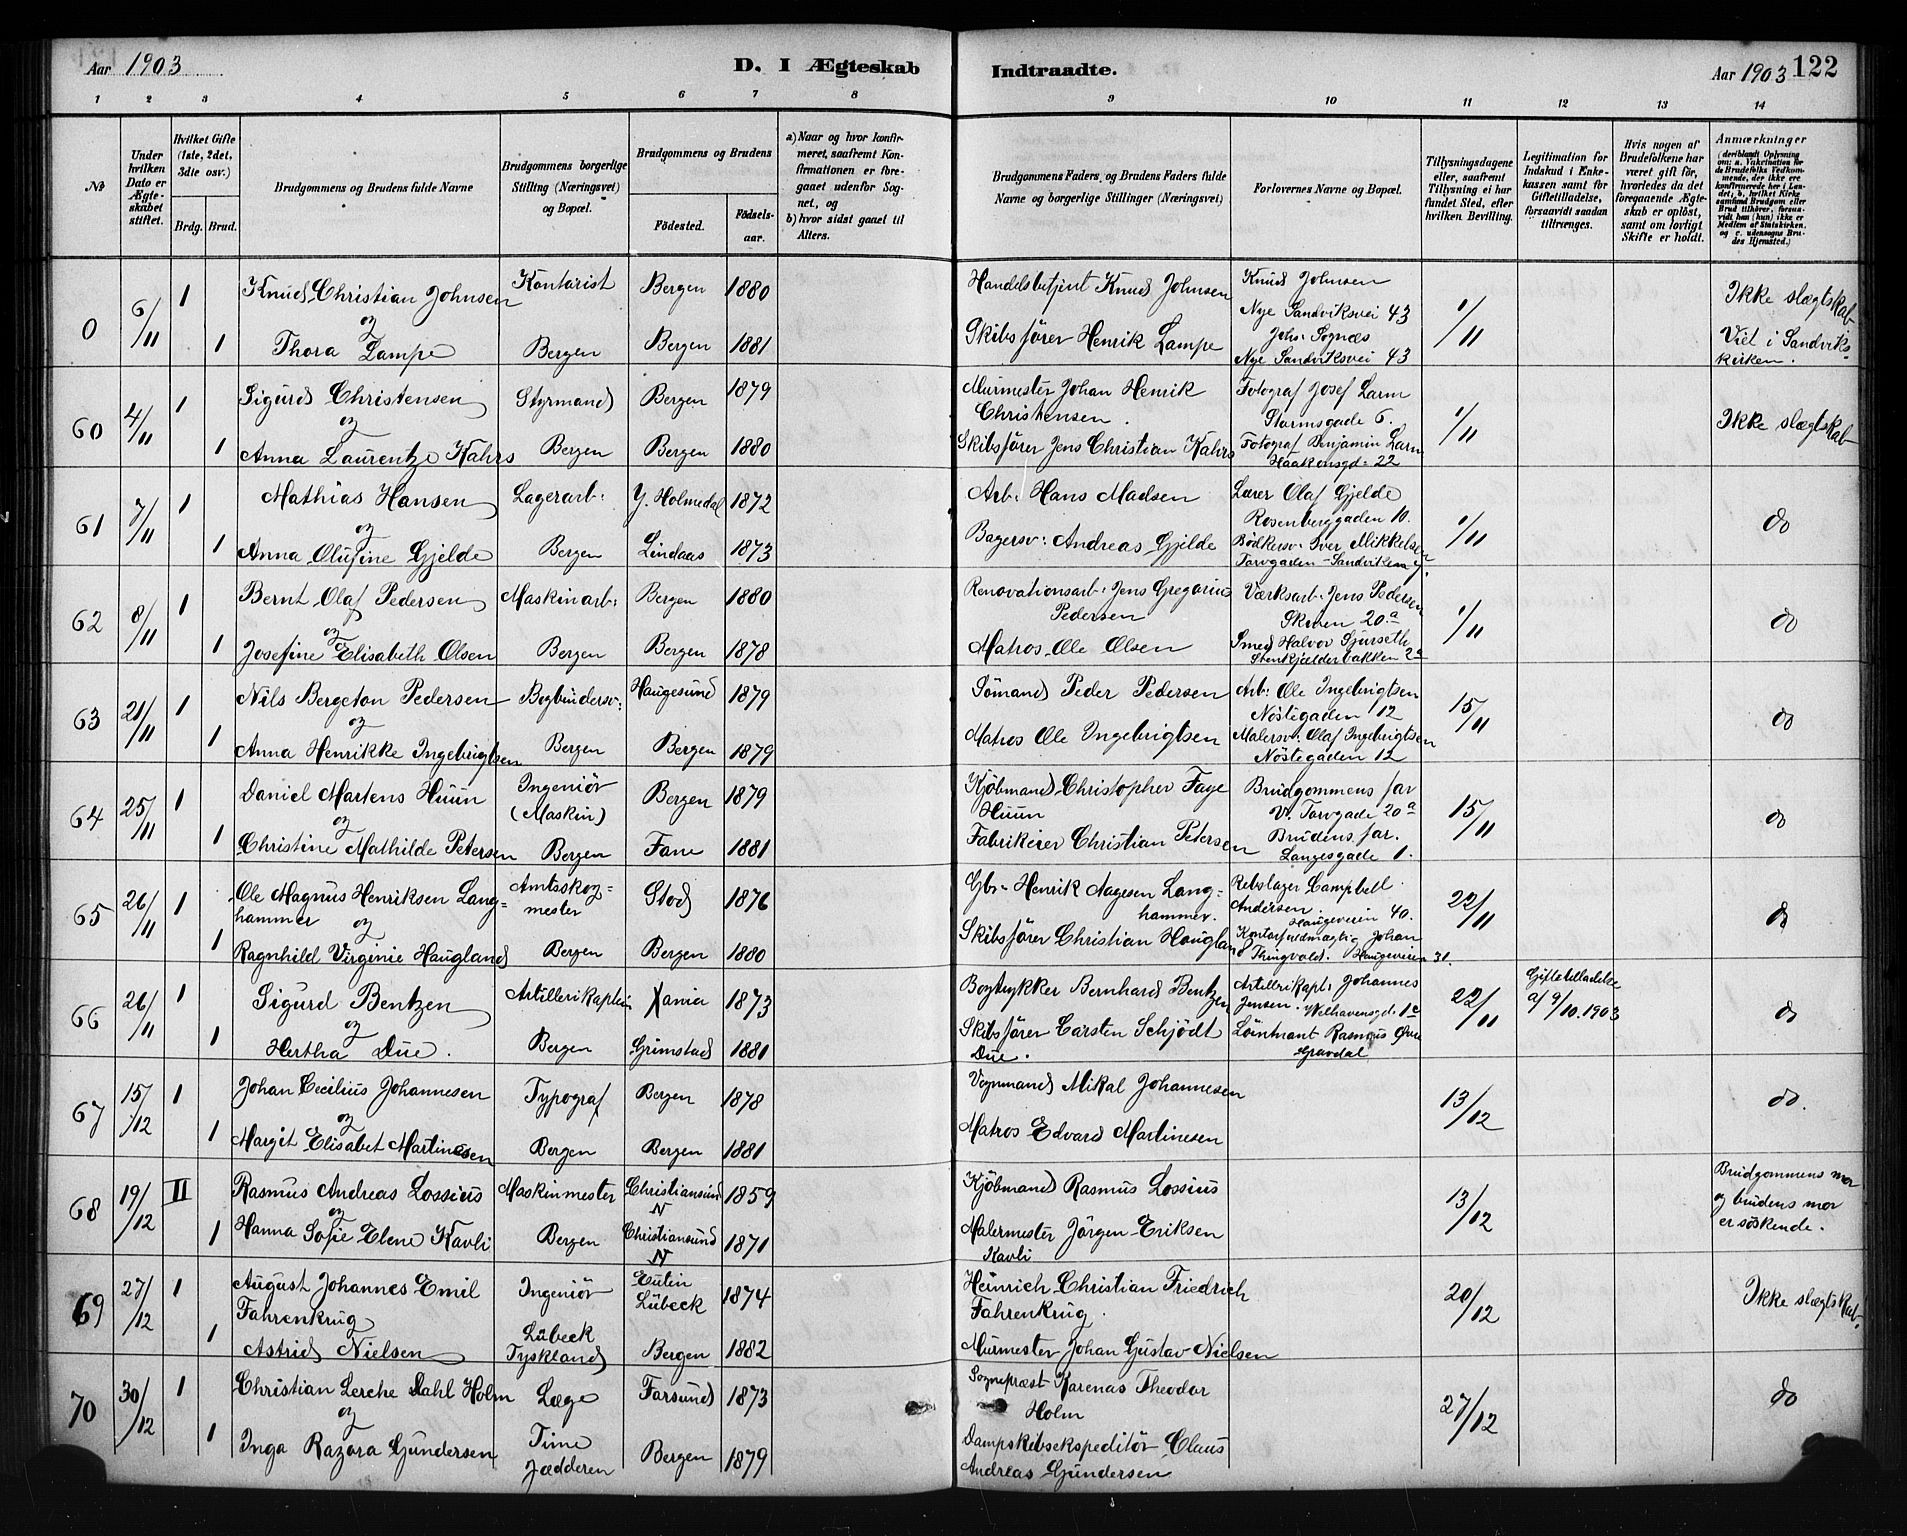 Aar 1903
D. I Ægteskab
Indtraadte.
Aar 1903 122
1 2 3 4 5 6 7 8 9 10 11 12 13 14
No
Under hvilken Dato er Ægteskabet stiftet.
Hvilket Gifte (1ste, 2det, 3die osv.)
Brdg. Brud.
Brudgommens og Brudens fulde Navne
Brudgommens borgerlige Stilling (Næringsvei) og Bopæl.
Brudgommens og Brudens
Fødested. Fødselsaar.
a) Naar og hvor konfirmeret, saafremt Konfirmationen er foregaaet udenfor Sognet, og
b) hvor sidst gaaet til Alters.
Brudgommens Faders, og Brudens Faders fulde Navne og borgerlige Stillinger (Næringsvei)
Forlovernes Navne og Bopæl.
Tillysningsdagene eller, saafremt Tillysning ei har fundet Sted, efter hvilken Bevilling.
Legitimation for Indskud i Enkekassen samt for Giftetilladelse, forsaavidt saadan tiltrænges.
Hvis nogen af Brudefolkene har været gift før, hvorledes da det foregaaende Ægteskab er opløst, samt om lovligt Skifte er holdt.
Anmærkninger
(deriblandt Oplysning om: a. Vakcination for de Brudefolks Vedkommende, der ikke ere konfirmerede her i Landet; b. hvilket Kirkesamfund Brudgom eller Brud tilhører, forsaavidt han (hun) ikke er Medlem af Statskirken. og c. udensogns Brudes Hjemsted.)
0 6/11 1 Knud Christian Johnsen Kontorist Bergen 1880 Handelsbetjent Knud Johnsen Knud Johnsen 1/11 Ikke slægtskab
og Nye Sandviksvei 43
1 Thora Lampe Bergen Bergen 1881 Skibsfører Henrik Lampe Johs. Sognæs Viet i Sandviks-
Nye Sandviksvei 43 kirken.
60 4/11 1 Sigurd Christensen Styrmand Bergen 1879 Murmester Johan Henrik Fotograf Josef Larm 1/11 Ikke slægtskab
og Christensen. Stormsgade 6.
1 Anna Laurentze Kahrs Bergen Bergen 1880 Skibsfører Jens Christian Kahrs Fotograf Benjamin Larm
Haakonsgd: 22
61 7/11 1 Mathias Hansen Lagerarb: Y. Holmedal 1872 Arb: Hans Madsen Lærer Olaf Gjelde 1/11 do
og Rosenberggaden 10.
1 Anna Olufine Gjelde Bergen Lindaas 1873 Bagersv: Andreas Gjelde Bødkersv. Iver Mikkelsen
Torvgaden Sandviken
62 8/11 1 Bernt Olaf Pedersen Maskinarb: Bergen 1880 Renovationsarb: Jens Gregorius Værksarb. Jens Pedersen 1/11 do
og Pedersen Skiven 20.a
1 Josefine Elisabeth Olsen Bergen Bergen 1878 Matros Ole Olsen Smed Halvor Sjurseth
Stenkjelderbakken 2a
63 21/11 1 Nils Bergeton Pedersen Bogbindersv: Haugesund 1879 Sømand Peder Pedersen Arb: Ole Ingebrigtsen 15/11 do
og Nøstegaden 12
1 Anna Henrikke Ingebrigtsen Bergen Bergen 1879 Matros Ole Ingebrigtsen Malersv: Olaf Ingebrigtsen
Nøstegaden 12
64 25/11 1 Daniel Martens Huun Ingeniør Bergen 1879 Kjøbmand Christopher Faye Brudgommens far 15/11 do
og (Maskin) Huun V. Torvgade 20a
1 Christine Mathilde Petersen Bergen Fane 1881 Fabrikeier Christian Petersen Brudens far.
Langesgade 1.
65 26/11 1 Ole Magnus Henriksen Lang- Amtsskog- Stod 1876 Gbr- Henrik Aagesen Lang- Rebslager Campbell 22/11 do
hammer og mester hammer. Andersen. Haugeveien 40.
1 Ragnhild Virginie Haugland Bergen Bergen 1880 Skibsfører Christian Haugland Kontorfuldmægtig Johan
Thingvold. Haugeveien 31.
66 26/11 1 Sigurd Bentzen Artillerikaptein Xania 1873 Bogtrykker Bernhard Bentzen Artillerikapt: Johannes 22/11 Giftetilladelse do
og Jensen. Welhavensgd. 1c af 9/10.1903
1 Hertha Due. Bergen Grimstad 1881 Skibsfører Carsten Schjødt Løitnant Rasmus
Due. Gravdal
67 15/12 1 Johan Cecilius Johannesen Typograf Bergen 1878 Vognmand Mikal Johannesen 13/12 do.
og
1 Margit Elisabet Martinesen Bergen Bergen 1881 Matros Edvard Martinesen
68 19/12 II Rasmus Andreas Lossius Maskinmester Christiansund N 1859 Kjøbmand Rasmus Lossius 13/12 Brudgommens mor
og og brudens mor
1 Hanna Sofie Elene Kavli Bergen Christiansund N 1871 Malermester Jørgen Eriksen er søskende.
Kavli
69 27/12 1 August Johannes Emil Ingeniør Eutin 1874 Heinrich Christian Friedrich 20/12 Ikke slægtskab.
Fahrenkrug Lübeck Fahrenkrug.
1 Astrid Nielsen Lübeck Tyskland Bergen 1882 Murmester Johan Gustav Nielsen
70 30/12 1 Christian Lerche Dahl Holm Læge Farsund 1873 Sognepræst Karenas Theodor 27/12 do
og Holm
1 Inga Razora Gundersen Time Bergen 1879 Dampskibsekspeditør Claus
Jædderen Andreas Gundersen